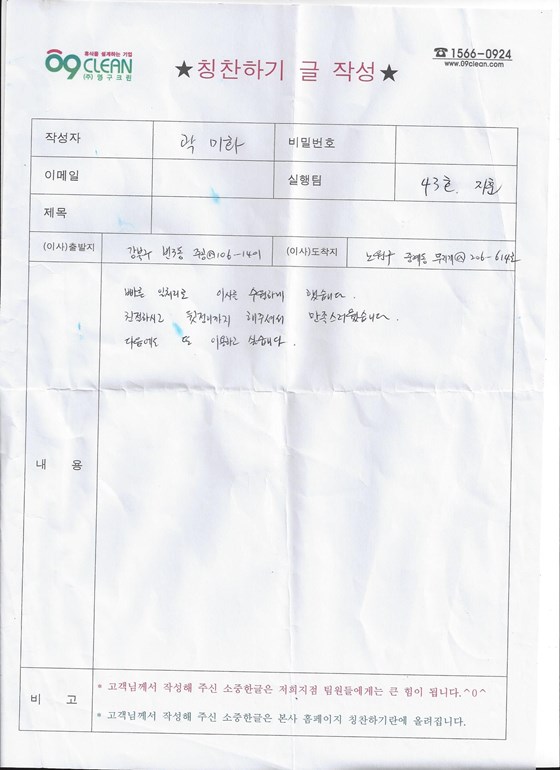 휴식을 설계하는 기업
09 CLEAN
(주)영구크린
☎ 1566-0924
www.09clean.com
★칭찬하기 글 작성★
작성자 곽 미화 비밀번호
이메일 실행팀 43호. 지훈
제목
(이사)출발지 강북구 번3동 주공@106-1401 (이사)도착지 노원구 중계동 무지개@ 206-614호
빠른 일처리로 이사를 수월하게 했습니다.
친절하시고 뒷정리까지 해주셔서 만족스러웠습니다.
다음에도 또 이용하고 싶습니다.
내 용
비 고
* 고객님께서 작성해 주신 소중한글은 저희지점 팀원들에게는 큰 힘이 됩니다.^0^
* 고객님께서 작성해 주신 소중한글은 본사 홈페이지 칭찬하기란에 올려집니다.